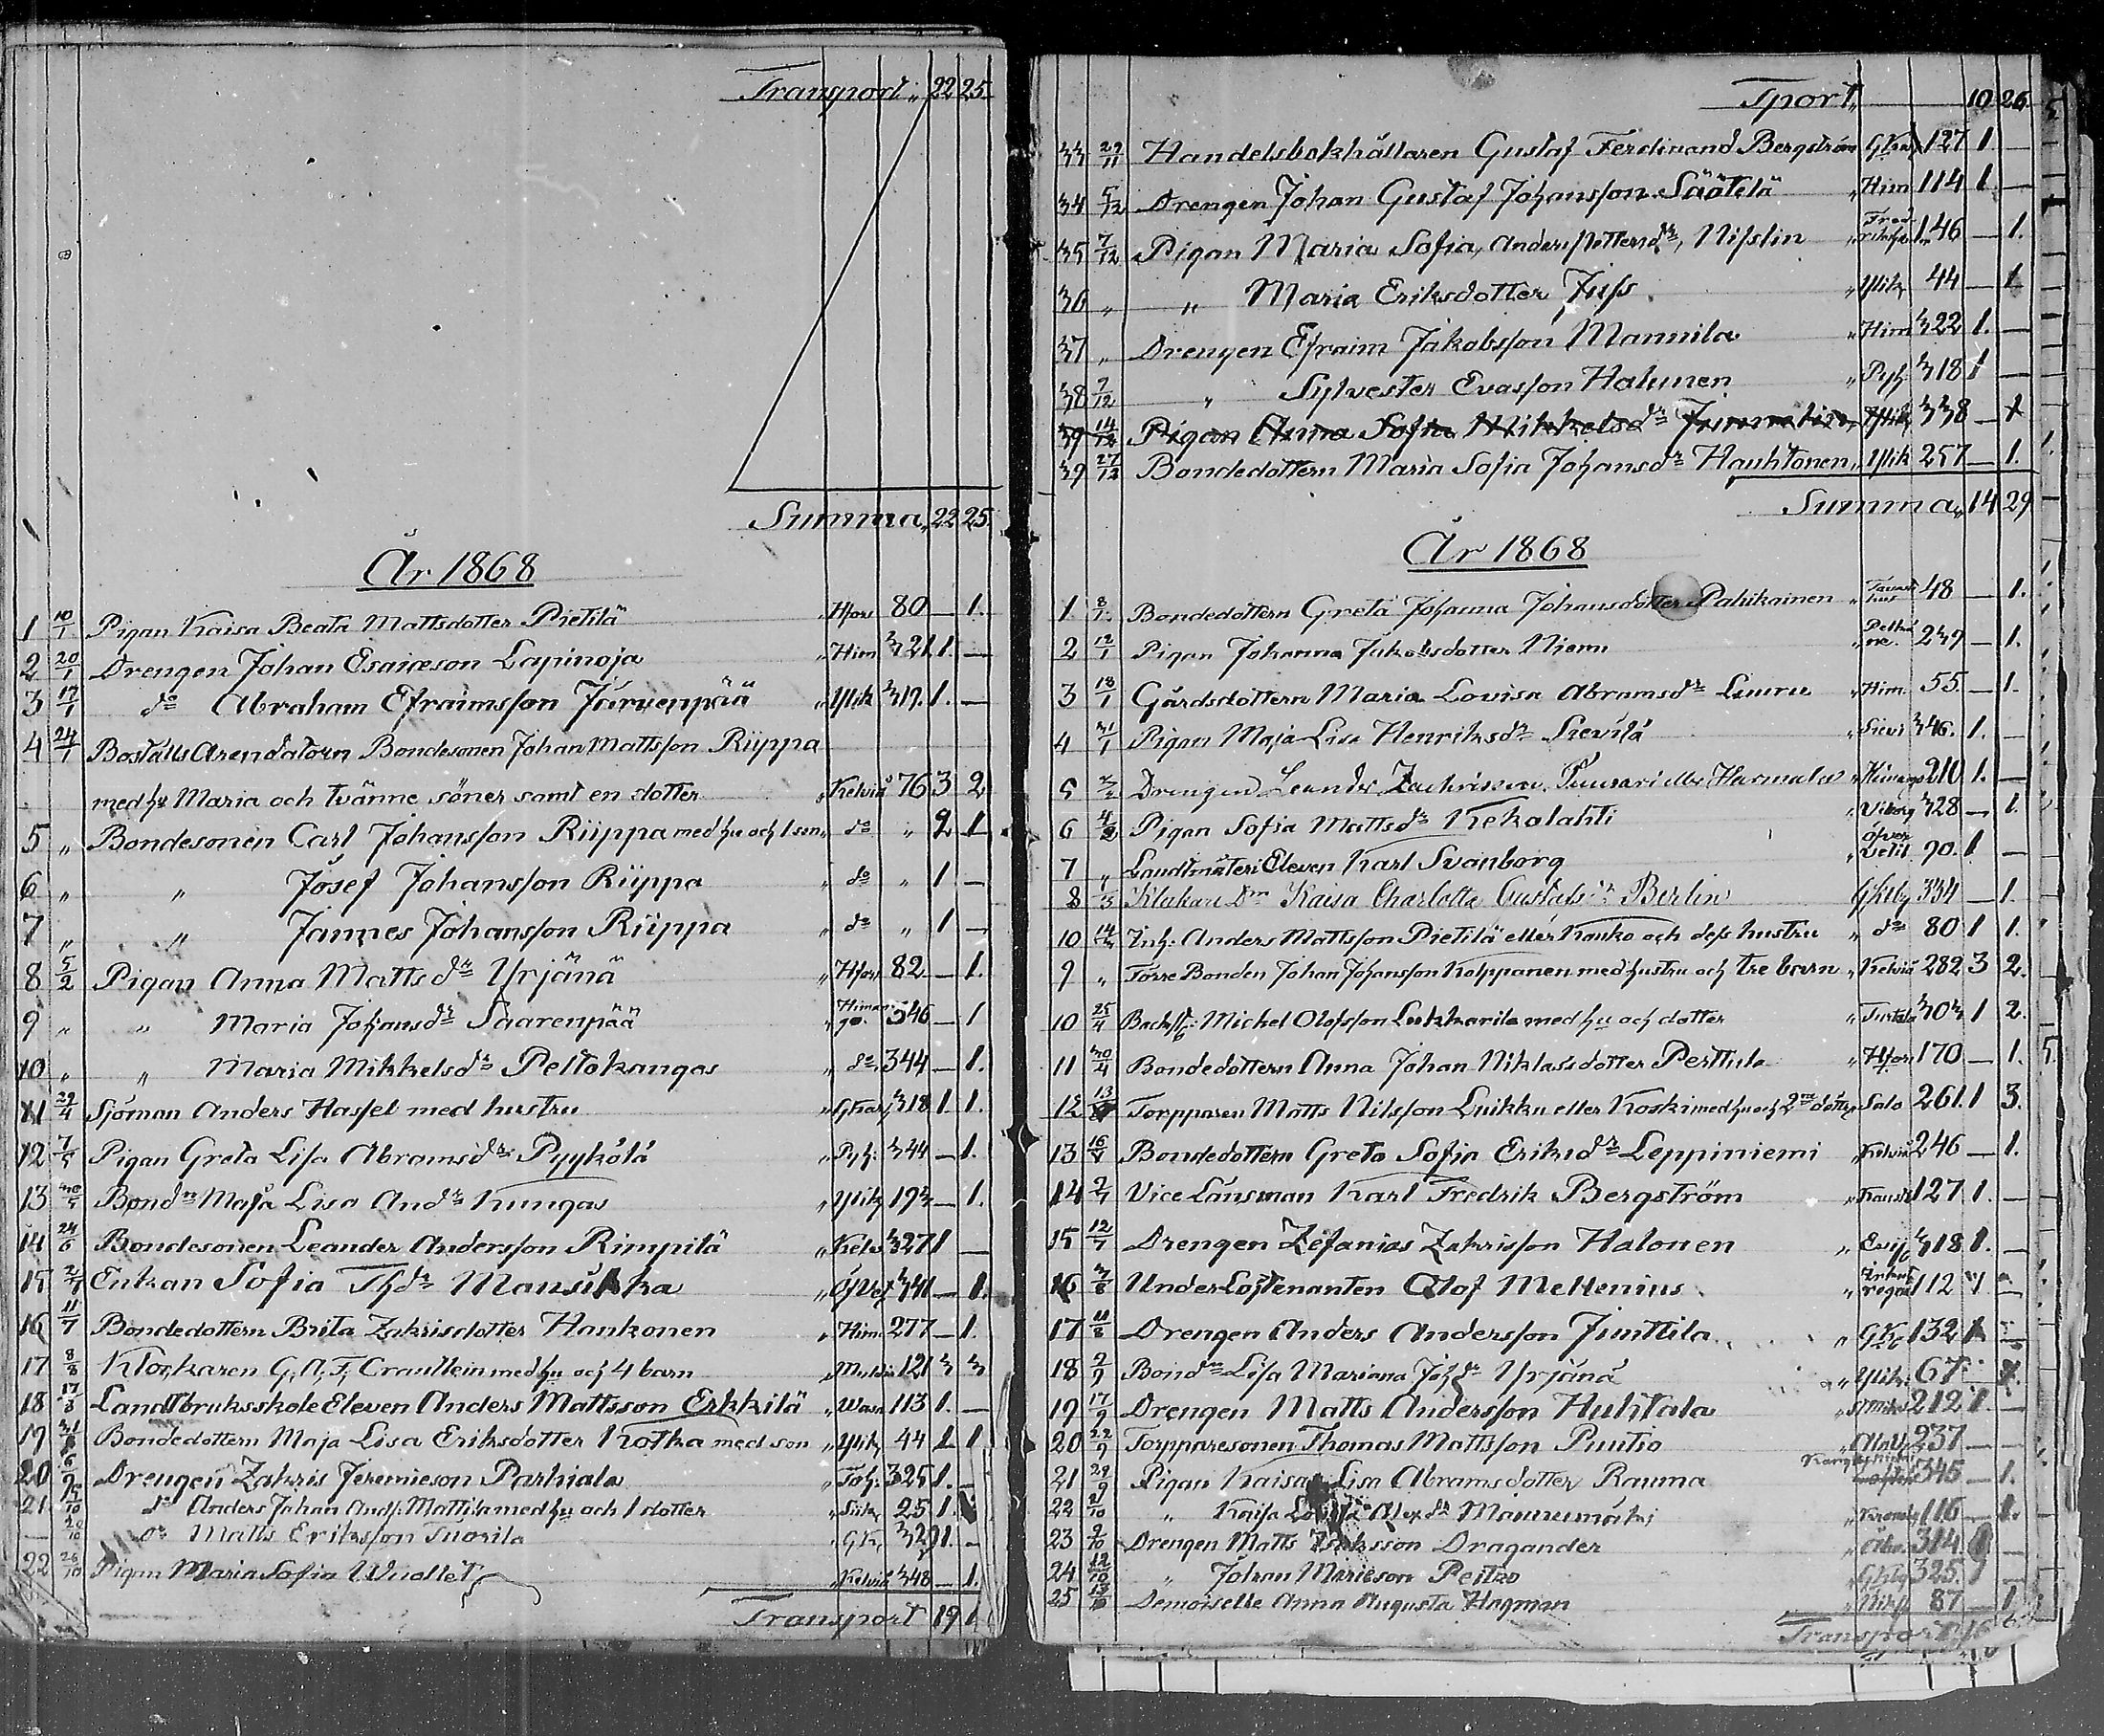 Transport „ 22 25.
Summa „ 22 25.
År 1868
1 10/1 Pigan Kaisa Beata Mattsdotter Pietilä „ Hfors 80 — 1.
2 20/1 Drengen Johan Esaiæson Lapinoja „ Him 321 1. —
3 17/1 do Abraham Efraimsson Järvenpää „ Ylik 319. 1. —
4 24/1 Boställs Arendatorn Bondesonen Johan Mattsson Riippa
med hu Maria och tvänne söner samt en dotter „ Kelviå 76 3 2
5 „ Bondesonen Carl Johansson Riippa med hu och 1 son „ do „ 2 1
6 „ „ Josef Johansson Riippa „ do „ 1 —
7 „ „ Jannes Johansson Riippa „ do „ 1 —
8 5/2 Pigan Anna Mattsdr Yrjänä „ Hfors 82 — 1.
9 „ „ Maria Johansdr Saarenpää „ Himango. 346 — 1
10 „ „ Maria Mikkelsdr Peltokangas „ do 344 — 1.
11 29/4 Sjöman Anders Hassel med hustru „ GKarl 318 1 1.
12 7/5 Pigan Greta Lisa Abramsdr Pyykölä „ Pyh: 344 — 1.
13 30/5 Bonddn Maja Lisa Andr Kungas „ Ylik 193 — 1.
14 24/6 Bondesonen Leander Andersson Rimpilä „ Kelv 327 1 —
15 2/7 Enkan Sofia Thdr Mansikka „ ÖfVet 341 — 1.
16 11/7 Bondedottern Brita Zakrisdotter Hankonen „ Him 277 — 1.
17 8/8 Klockaren G. A. F. Crantlein med hu och 4 barn 121 3 3
18 17/8 Landtbruksskole Eleven Anders Mattsson Erkkilä „ Wasa 113 1. —
19 Bondedottern Maja Lisa Eriksdotter Kotka med son „ Ylik 44 1 1
20 6/9 Drengen Zakris Jeremieson Parhiala „ Toh. 325 1. —
21. do Anders Johan Ands. Mattila med hu och 1 dotter 25 1.
— do Matts Eriksson Tuorila „ GK 329 1. —
22 26/10 Pigan Maria Sofia Wuollet „ Kelviå 348 — 1.
Transport 19 1
Tport „ 10 26
33 29/11 Handelsbokhållaren Gustaf Ferdinand Bergström GKarl 127 1. —
34 5/12 Drengen Johan Gustaf Johansson Säätelä „ Him 114 1. —
35 7/12 Pigan Maria Sofia, Anders Pettersdr, Nisslin „ Fredrikshamn 146 — 1.
36 „ „ Maria Eriksdotter Juss „ Ylik 44 — 1
37 „ Drengen Efraim Jakobsson Mannila „ Him 322 1. —
38 7/12 „ Sylvester Evasson Halunen „ Pyh: 318 1 —
39 14/12 Pigan Anna Sofia Mikkelsdr Ylik 338 — 1
39 27/12 Bondedottern Maria Sofia Johansdr Hauhtonen „ Ylik 257 — 1.
Summa „ 14 29
År 1868
1. 8/1. Bondedottern Greta Johanna Johansdotter Pahikainen „ Tavasthus 48 — 1.
2 12/1 Pigan Johanna Jakobsdotter Niemi „ 239 — 1.
3 18/1 Gårdsdottern Maria Lovisa Abramsdr Lauru „ Him. 55. — 1.
4 31/1 Pigan Maja Lisa Henriksdr Sievilä „ Sievi 346. 1. —
5 Drengen Leander Zachrisson eller Harmala „ Himango 210 1. —
6 4/2 Pigan Sofia Mattsdr Kekolahti „ Viborg 328 — 1.
7 „ Landtmäteri Eleven Karl Svanborg „ Öfver Vetil 90. 1 —
8 Klockare Dn Kaisa Charlotta Gustafsdr Berlin Gkby 334 — 1.
10 14/3 Inh: Anders Mattsson Pietilä eller Kauko och dess hustru „ do 80 1 1.
9 „ Torre Bonden Johan Johansson Kolppanen med hustru och tre barn „ Kelviå 282 3 2.
10 25/4 Michel Olofsson Lukkarila med hu och dotter 303 1 2.
11 30/4 Bondedottern Anna Johan Niklasdotter Perttula „ Hfors 170 — 1.
12 13 Torpparen Matts Nilsson Luikku eller Koski med hu och 2ne döttr Salo 261. 1 3.
13 16 Bondedottern Greta Sofia Eriksdr Leppiniemi „ Kelviå 246 — 1.
14 2/7 Vice Länsman Karl Fredrik Bergström „ Kaustb 127 1. —
15 12/7 Drengen Zefanias Zakrisson Halonen „ 318 1. —
16 3/8 Under Löjtenanten Olof Mellenius „ 112 1 —
17 11/8 Drengen Anders Andersson Junttila „ GKb 132 1 —
18 2/9 Bonddn Lisa Mariana Johdr Yrjänä „ Ylik. 67 1.
19 17/9 Drengen Matts Andersson Huhtala 212 1. —
20 22/9 Torpparesonen Thomas Mattsson Puutio 237 — —
21 29/9 Pigan Kaisa Lisa Abramsdotter Rauma 345 — 1.
22 2/10 „ Kaisa Lovisa Alexdr „ Kronoby 116 — 1.
23 9/10 Drengen Matts Isaksson Dragander „ Åbo 314 1 —
24 12/10 „ Johan Marieson Peitso „ Gkby 325. 1 —
25 13/10 Demoiselle Anna Augusta Hagman 87 — 1
Transport 16